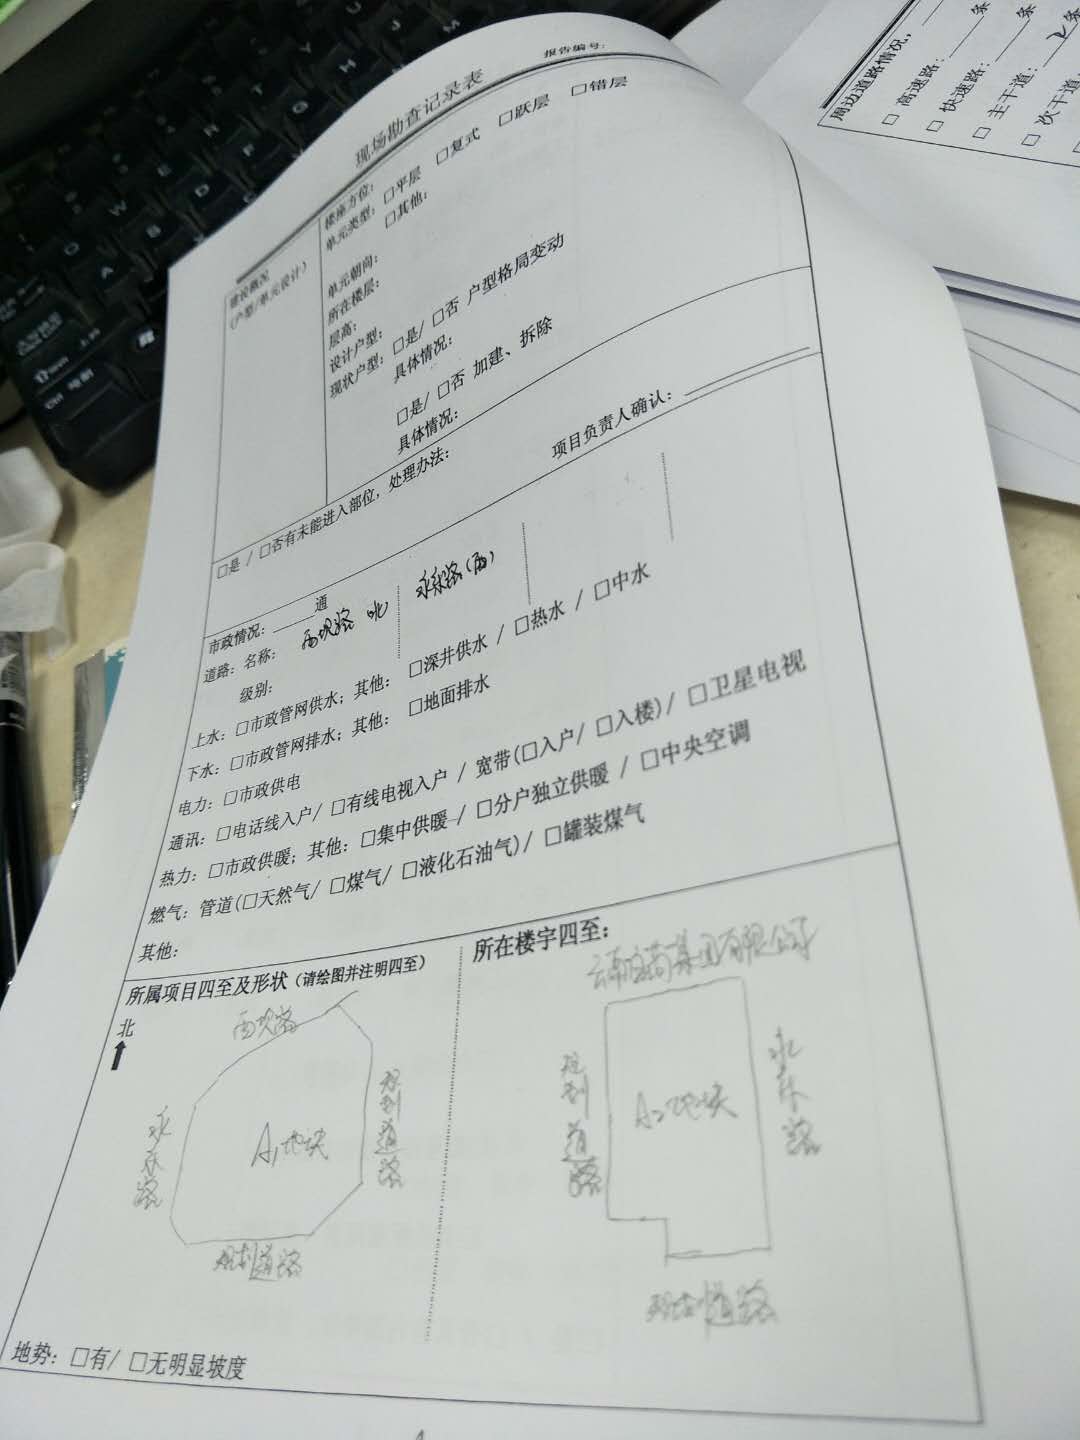 报告编号:
现场勘查记录表
建设概况
(户型/单元设计)
楼座方位:
单元类型: □平层 □复式 □跃层 □错层
□其他:
单元朝向:
所在楼层:
层高:
设计户型:
现状户型: □是/ □否 户型格局变动
具体情况:
□是/ □否 加建、拆除
具体情况:
□是 / □否有未能进入部位，处理办法:
项目负责人确认:
市政情况: 通
道路: 名称: 西坝路(北) 永乐路(西)
级别:
上水: □市政管网供水; 其他: □深井供水 / □热水 / □中水
下水: □市政管网排水; 其他: □地面排水
电力: □市政供电
通讯: □电话线入户/ □有线电视入户 / 宽带(□入户/ □入楼)/ □卫星电视
热力: □市政供暖; 其他: □集中供暖 / □分户独立供暖 / □中央空调
燃气: 管道(□天然气/ □煤气/ □液化石油气)/ □罐装煤气
其他:
所属项目四至及形状 (请绘图并注明四至)
北
西坝路
永乐路
A1地块
规划道路
规划道路
所在楼宇四至:
云南白药集团有限公司
规划道路
A2地块
永乐路
规划道路
地势: □有/ □无明显坡度
周边道路情况,
□ 高速路: 条
□ 快速路: 条
□ 主干道: 条
□ 次干道: